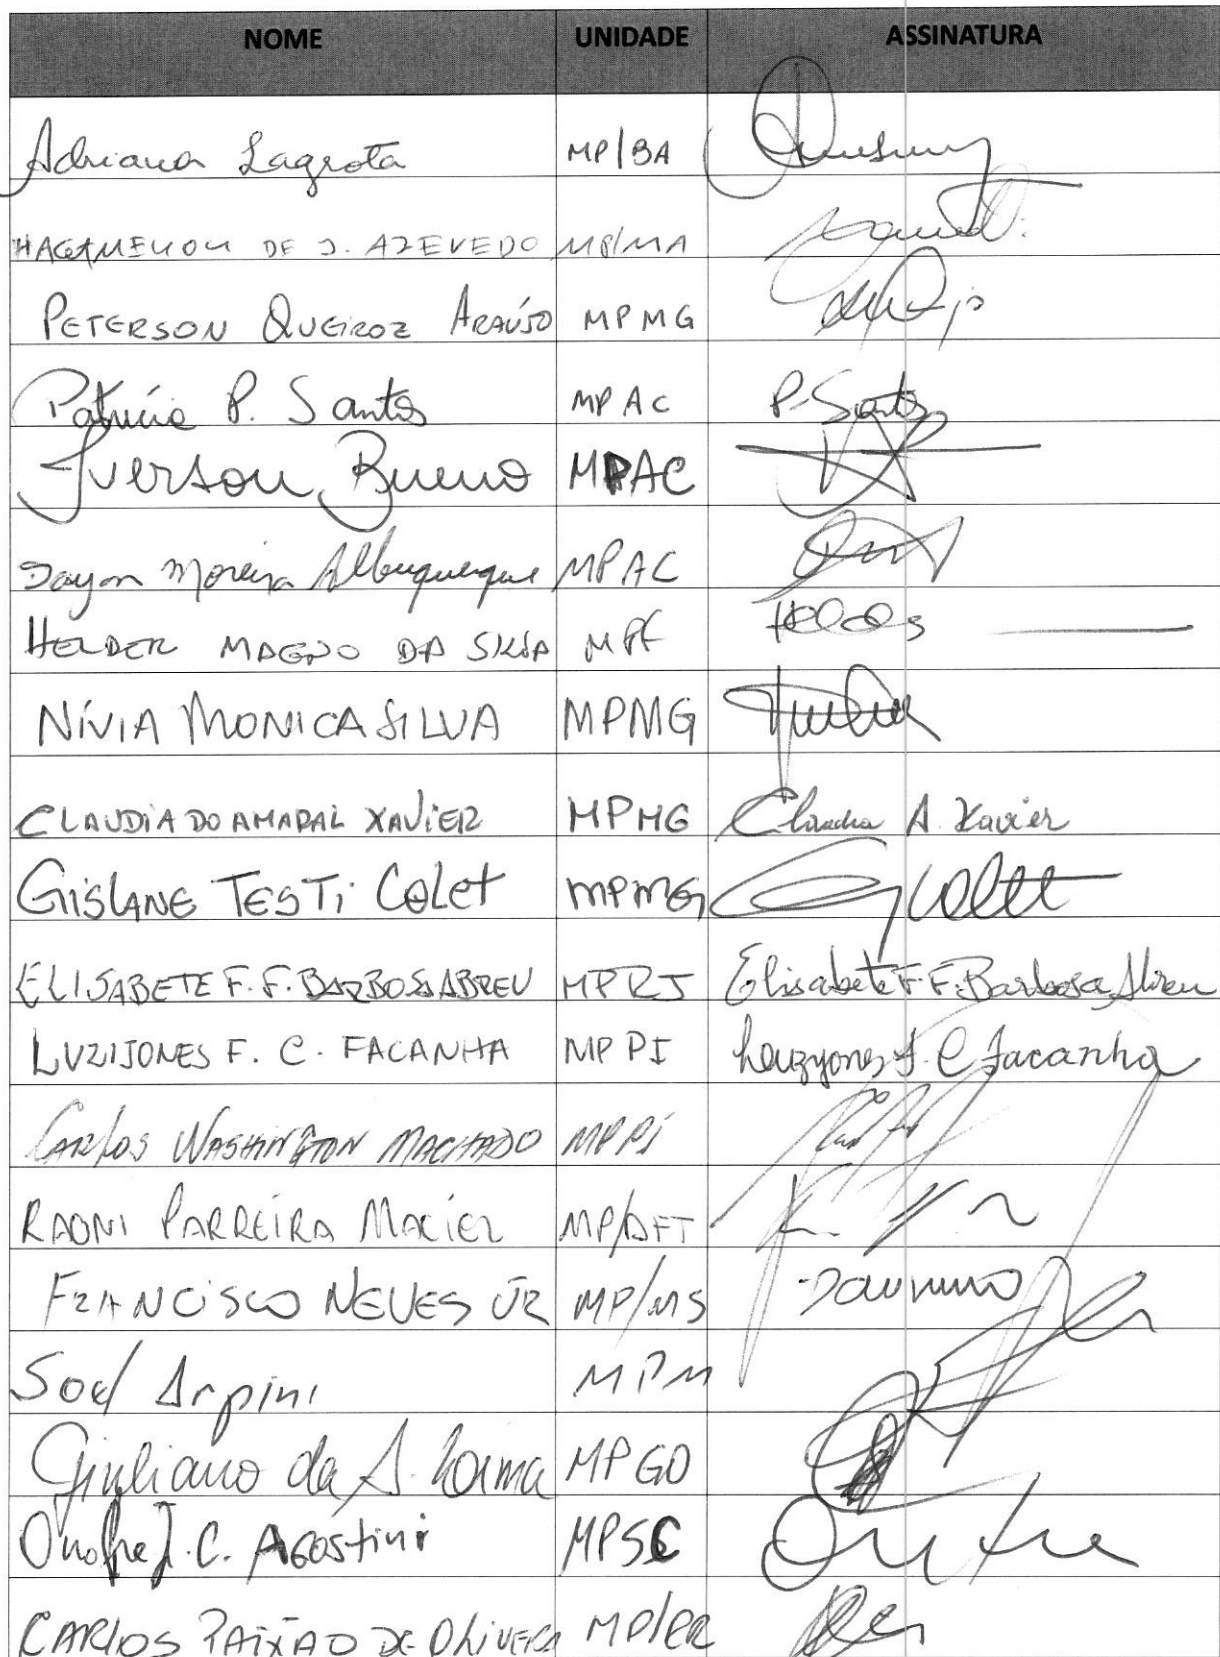 NOME UNIDADE ASSINATURA
Adriana Lagrota MP/BA
HAGAMENON DE J. AZEVEDO MP/MA
PETERSON QUEIROZ ARAÚJO MPMG
Patrícia P. Santos MPAC P. Santos
Iverson Bueno MPAC
Dayan Moreira Albuquerque MPAC
HELDER MAGNO DA SILVA MPF
NÍVIA MONICA SILVA MPMG
CLAUDIA DO AMARAL XAVIER MPMG Claudia A. Xavier
GISLANE TESTI COLET MPMG Colet
ELISABETE F. F. BARBOSA ABREU MPRJ Elisabete F. F. Barbosa Abreu
LUZIJONES F. C. FACANHA MPPI Luzyones F. C Facanha
CARLOS WASHINGTON MACHADO MPPI
RAONI PARREIRA MACIEL MP/DFT
FRANCISCO NEVES JR MP/MS
Soel Arpini MPM
Giuliano da S. Lima MPGO
Onofre J. C. Agostini MPSC Onofre
CARLOS PAIXÃO DE OLIVEIRA MP/PR